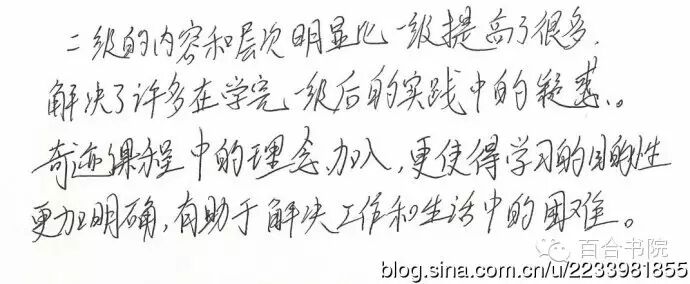 二级的内容和层次明显比一级提高了很多,
解决了许多在学完一级后的实践中的疑惑。
奇迹课程中的理念加入,更使得学习的目的性
更加明确,有助于解决工作和生活中的困难。
百合书院
blog.sina.com.cn/u/2233981855